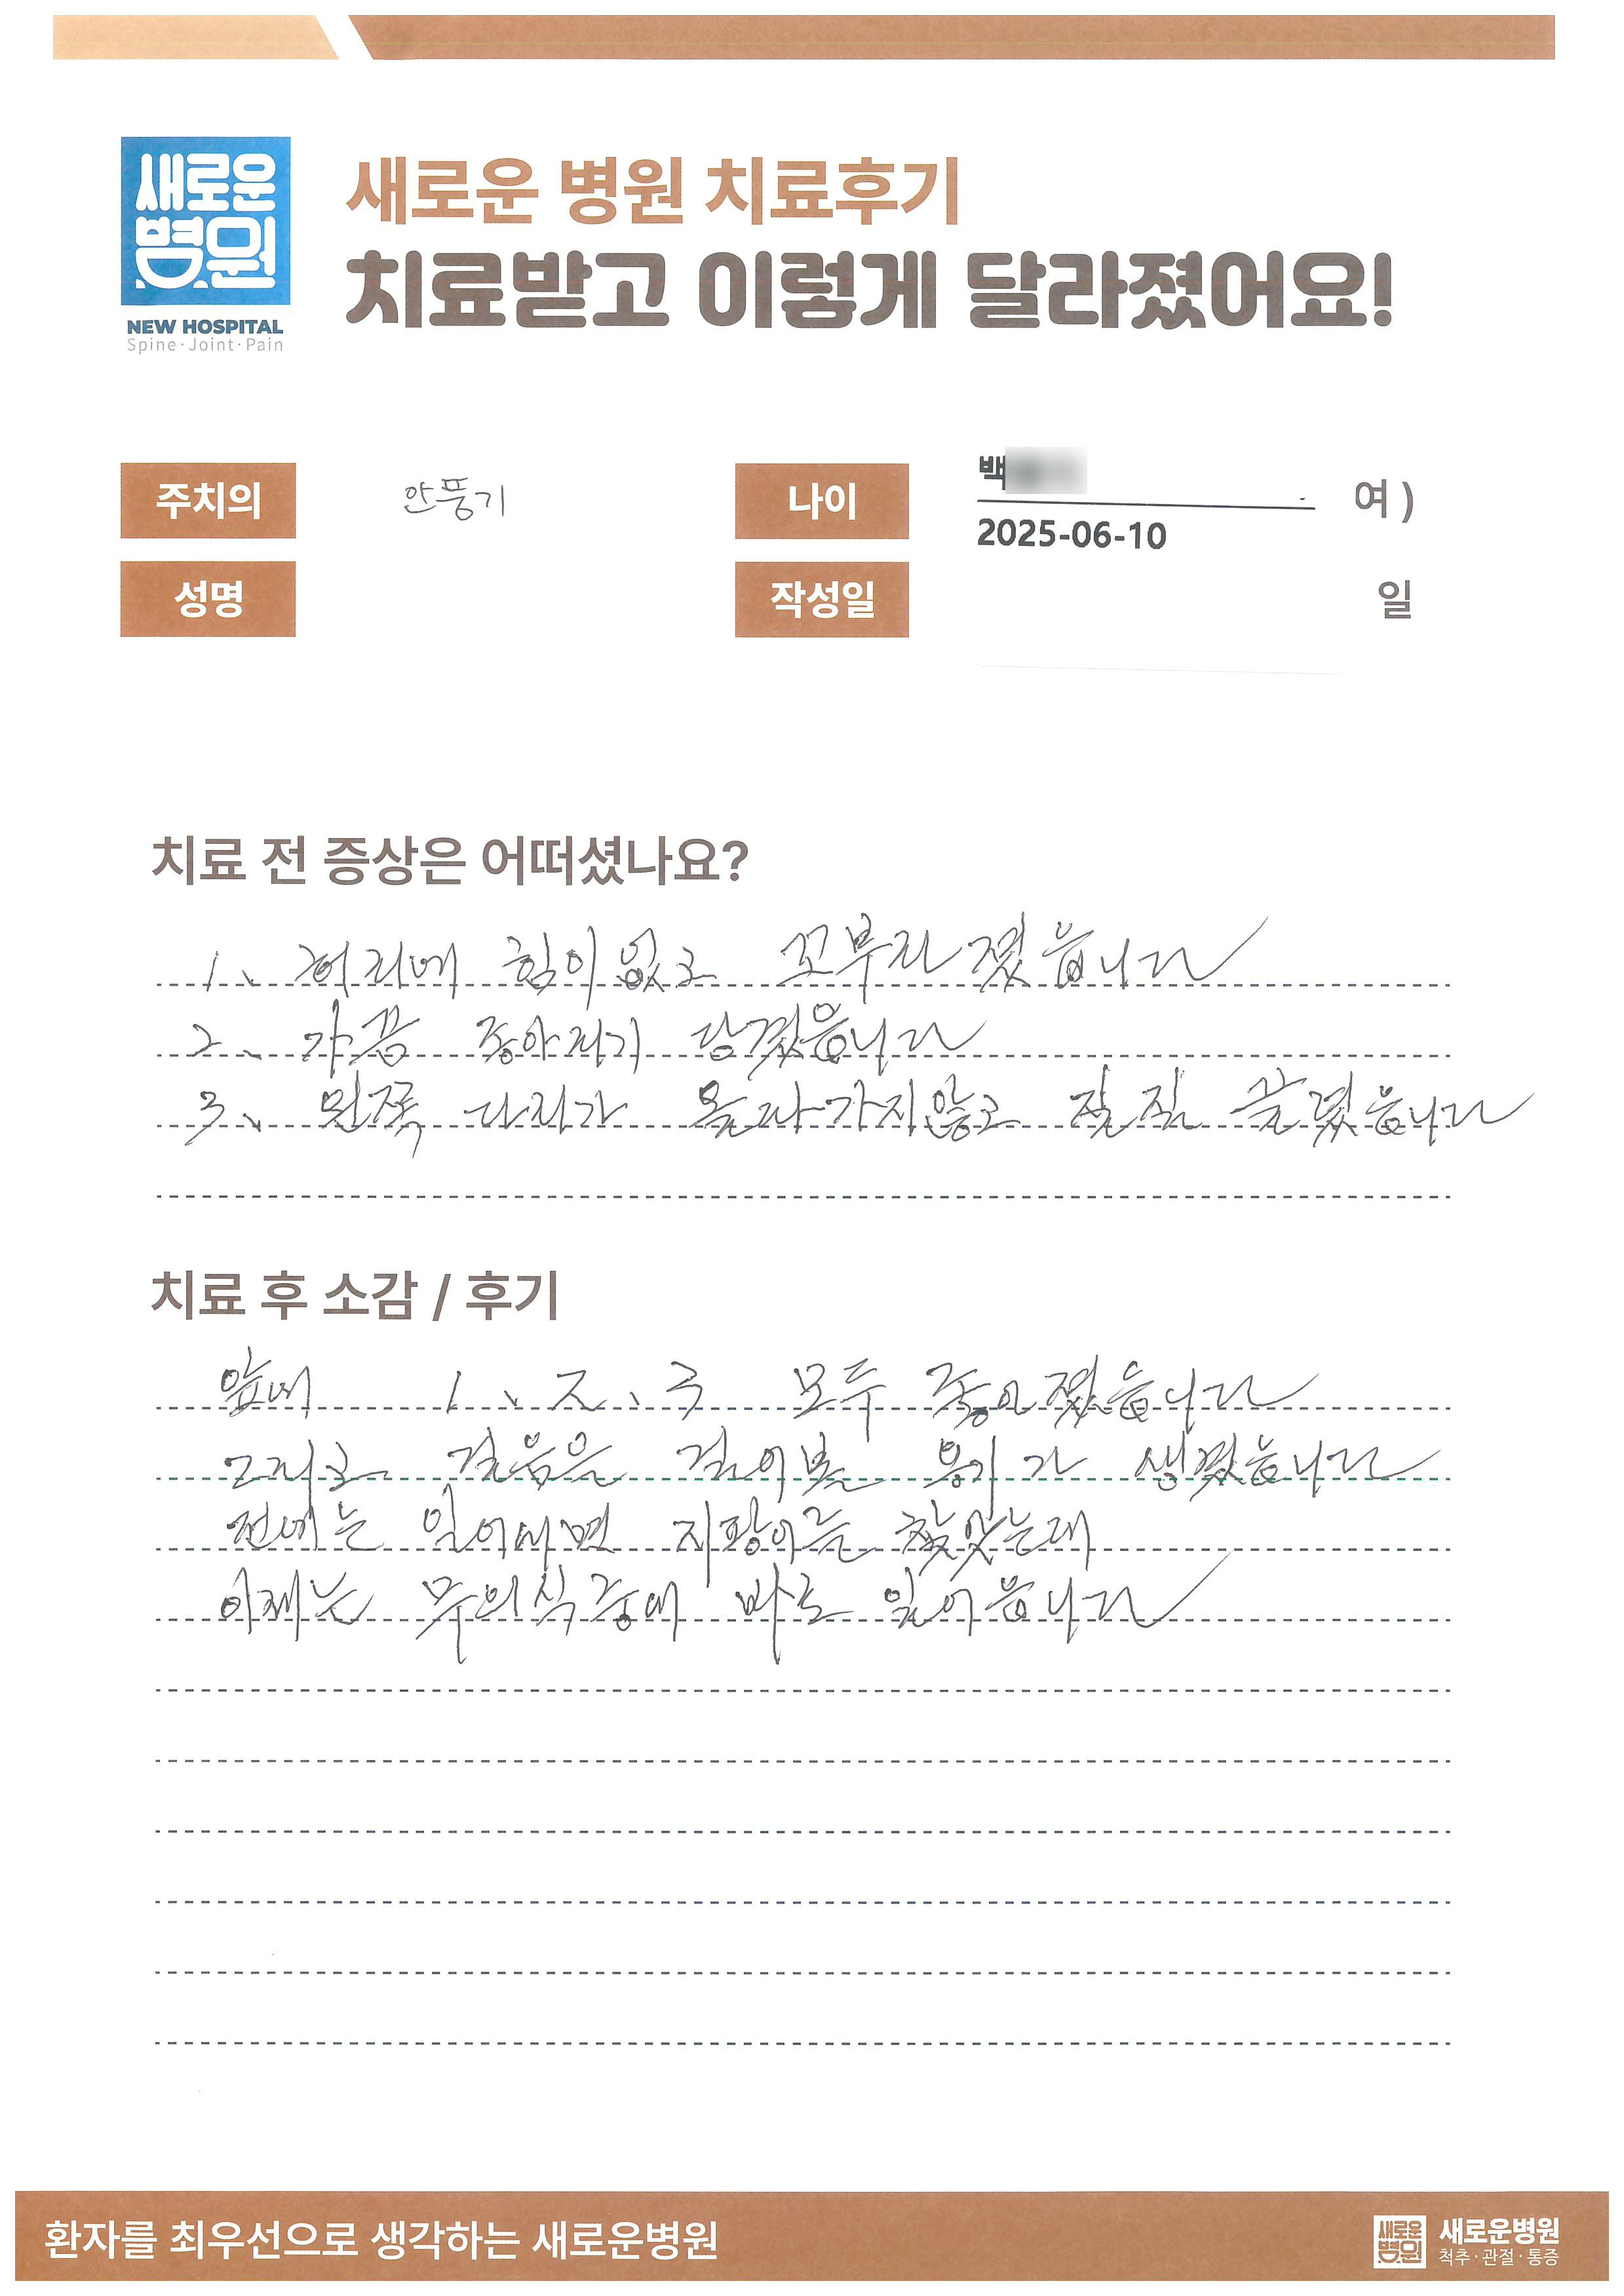 새로운
병원
NEW HOSPITAL
Spine·Joint·Pain
새로운 병원 치료후기
치료받고 이렇게 달라졌어요!
주치의 안풍기 나이 백 여 )
2025-06-10
성명 작성일 일
치료 전 증상은 어떠셨나요?
1、 허리에 힘이 없고 꼬부라졌습니다
2、 가끔 종아리가 당겼습니다
3、 왼쪽 다리가 올라가지않고 질질 끌렸습니다
치료 후 소감 / 후기
앞에 1、2、3 모두 좋아졌습니다
그리고 걸음을 걸어볼 용기가 생겼습니다
전에는 일어나면 지팡이를 찾았는데
이제는 무의식중에 바로 일어습니다
환자를 최우선으로 생각하는 새로운병원
새로운
병원
새로운병원
척추·관절·통증